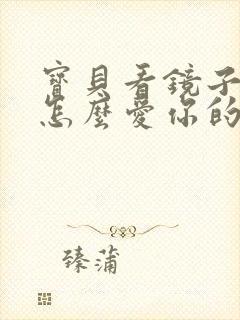 寶貝看鏡子
怎麼愛你的
臻蒲